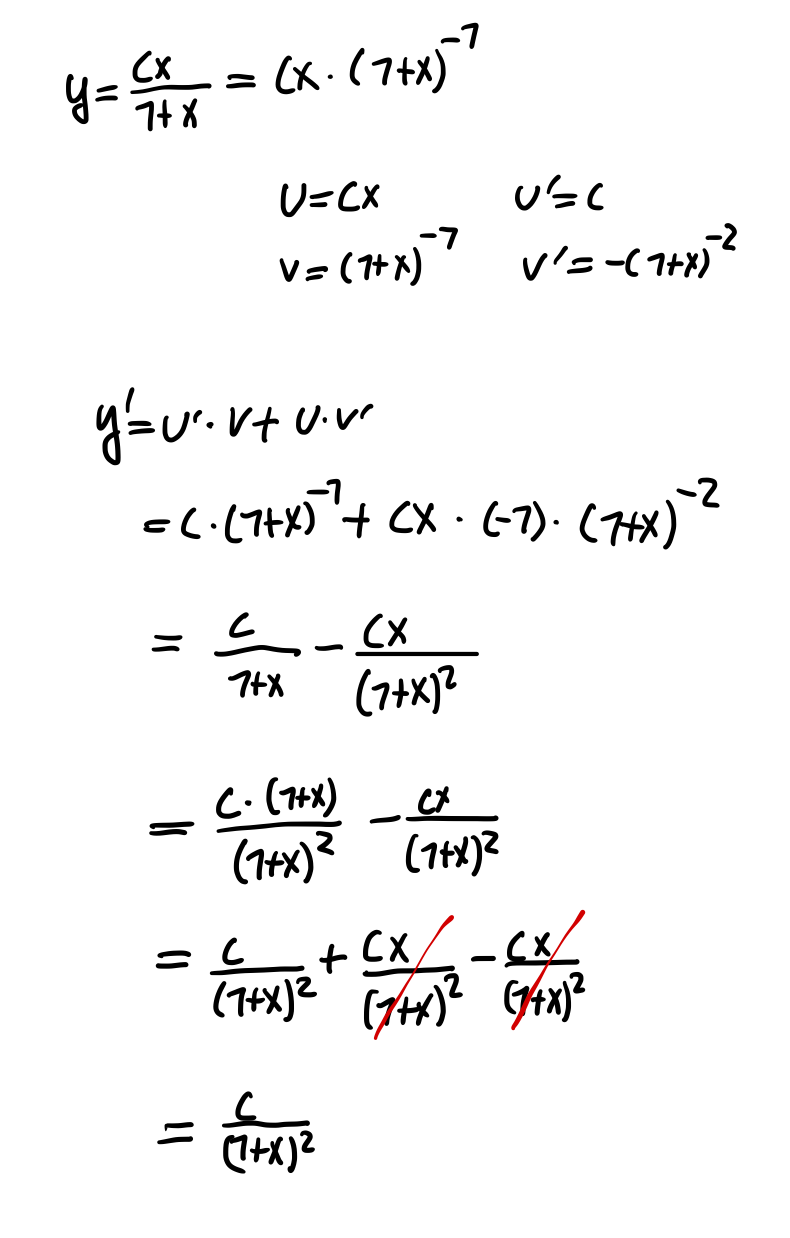 y = cx/(1+x) = cx · (1+x)^-1
u = cx u' = c
v = (1+x)^-1 v' = -(1+x)^-2
y' = u' · v + u · v'
= c · (1+x)^-1 + cx · (-1) · (1+x)^-2
= c/(1+x) - cx/(1+x)^2
= c · (1+x)/(1+x)^2 - cx/(1+x)^2
= c/(1+x)^2 + cx/(1+x)^2 - cx/(1+x)^2
= c/(1+x)^2